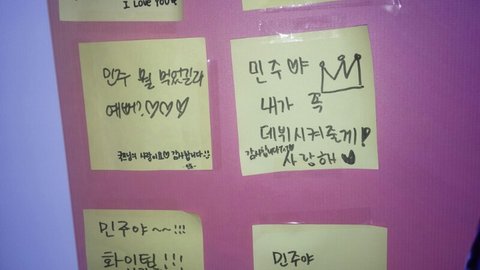 I LOVE YOU
민주 뭘 먹었길래
예뻐?♡♡♡
감사합니다!!
민주야
내가 꼭
데뷔시켜줄게!
감사합니다
사랑해♥
민주야~~!!!
화이팅!!!
민주야